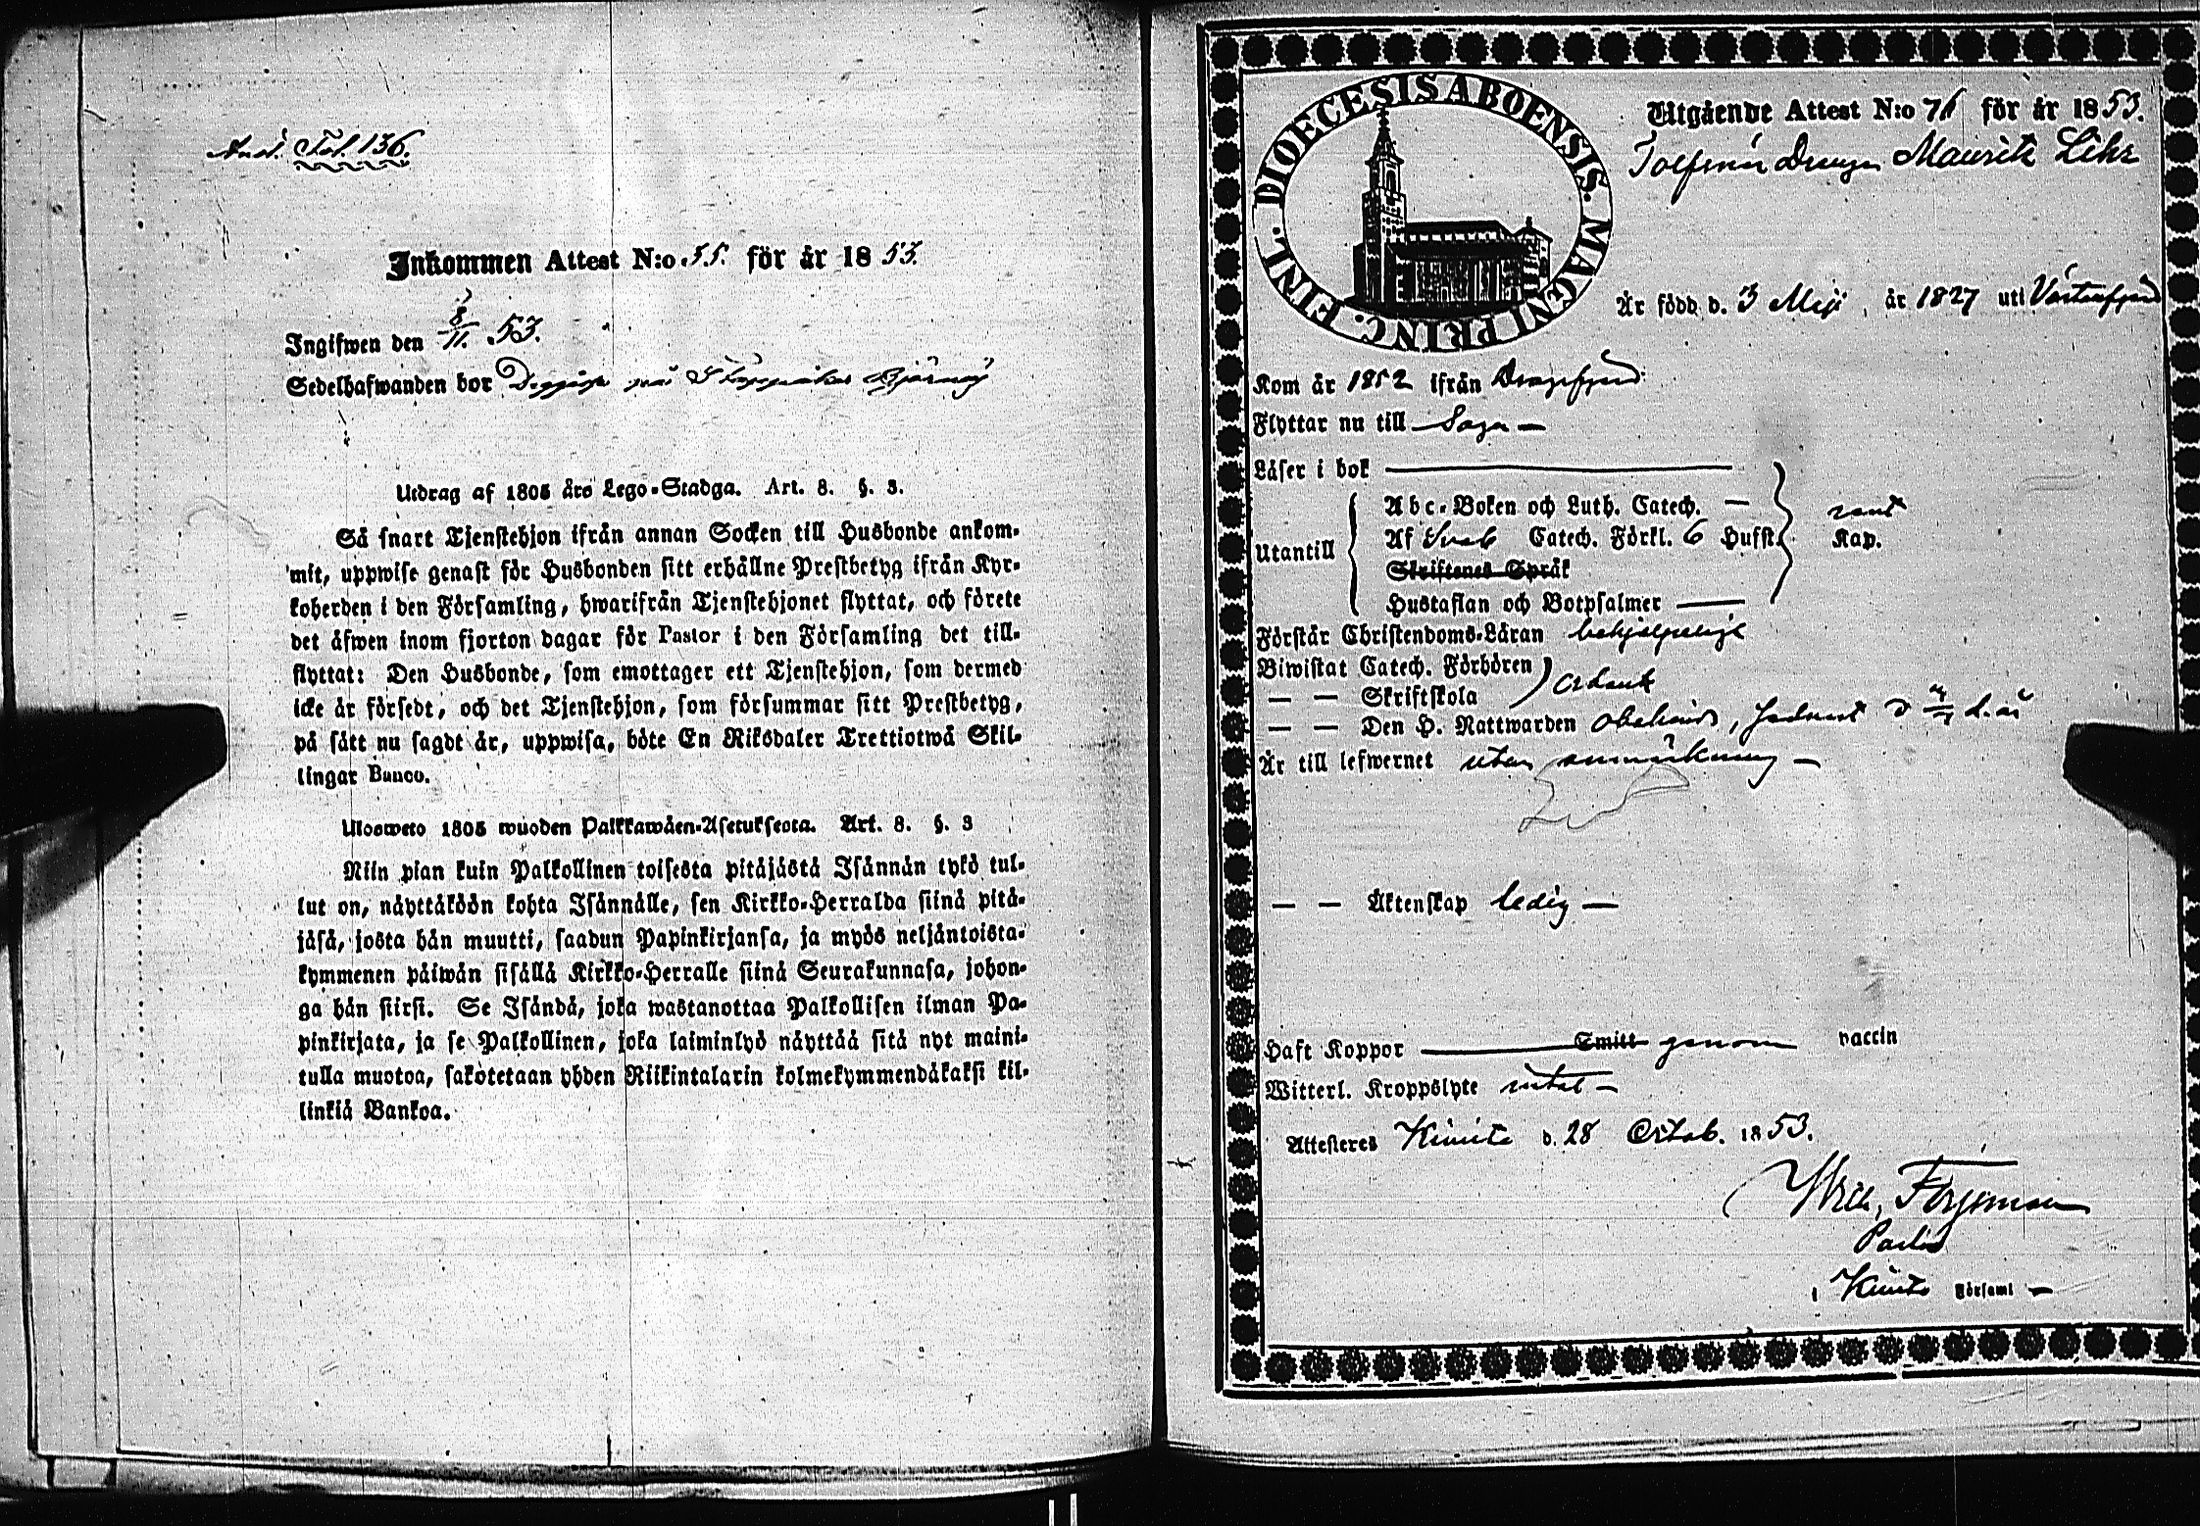 Fol. 136.
Inkommen Attest N:o 55. för år 1853.
Ingifwen den 8/11. 53.
Sedelhafwanden bor på
Utdrag af 1805 års Lego-Stadga. Art. 8. §. 3.
Så snart Tjenstehjon ifrån annan Socken till Husbonde ankom-
mit, uppwise genast för Husbonden sitt erhållne Prestbetyg ifrån Kyr-
koherden i den Församling, hwarifrån Tjenstehjonet flyttat, och förete
det äfwen inom fjorton dagar för Pastor i den Församling det till-
flyttat: Den Husbonde, som emottager ett Tjenstehjon, som dermed
icke är försedt, och det Tjenstehjon, som försummar sitt Prestbetyg,
på sätt nu sagdt är, uppwisa, böte En Riksdaler Trettiotwå Skil-
lingar Banco.
Ulosweto 1805 wuoden Palkkawäen-Asetuksesta. Art. 8. §. 3
Niin pian kuin Palkollinen toisesta pitäjästä Isännän tykö tul-
lut on, näyttäköön kohta Isännälle, sen Kirkko-Herralda siinä pitä-
jäsä, josta hän muutti, saadun Papinkirjansa, ja myös neljäntoista-
kymmenen päiwän sisällä Kirkko-Herralle siinä Seurakunnasa, johon-
ga hän siirst. Se Isändä, joka wastanottaa Palkollisen ilman Pa-
pinkirjata, ja se Palkollinen, joka laiminlyö näyttää sitä nyt maini-
tulla muotoa, sakotetaan yhden Riikintalarin kolmekymmendäkaksi kil-
linkiä Bankoa.
DIOECESIS ABOENSIS. MAGNI PRINC. FINL.
Utgående Attest N:o 76 för år 1853.
Drengen Mauritz
Är född d. 3 Maji, år 1827 uti Västanfjerd
Kom år 1852 ifrån Dragsfjerd
Flyttar nu till Sagu —
Läser i bok
Utantill
Abc-Boken och Luth. Catech. —
Af Sveb Catech. Förkl. 6 Hufst.
Skriftenes Språk
Hustaflan och Botpsalmer —
Kap.
Förstår Christendoms-Läran behjelpeligt
Biwistat Catech. Förhören
— — Skriftskola
— — Den H. Nattwarden
Är till lefwernet utan anmärkning —
— — Äktenskap ledig —
Haft Koppor — Smitt genom vaccin
Witterl. Kroppslyte intet —
Attesteres Kimito d. 28 Octob. 1853.
Pastor
i Kimito Församl —